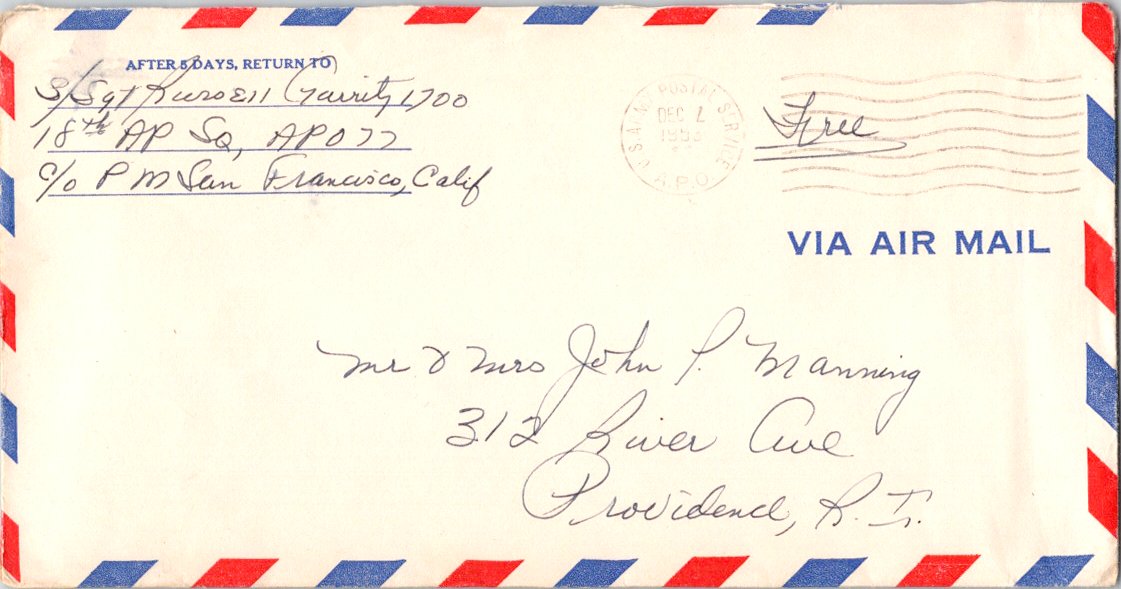 AFTER 5 DAYS, RETURN TO
S/Sgt Russell Garrity 1700
18th AP Sq, APO 77
c/o P M San Francisco, Calif
U.S. ARMY POSTAL SERVICE
A.P.O.
DEC 2
195
Free
VIA AIR MAIL
Mr & Mrs John P. Manning
312 River Ave
Providence, R. I.